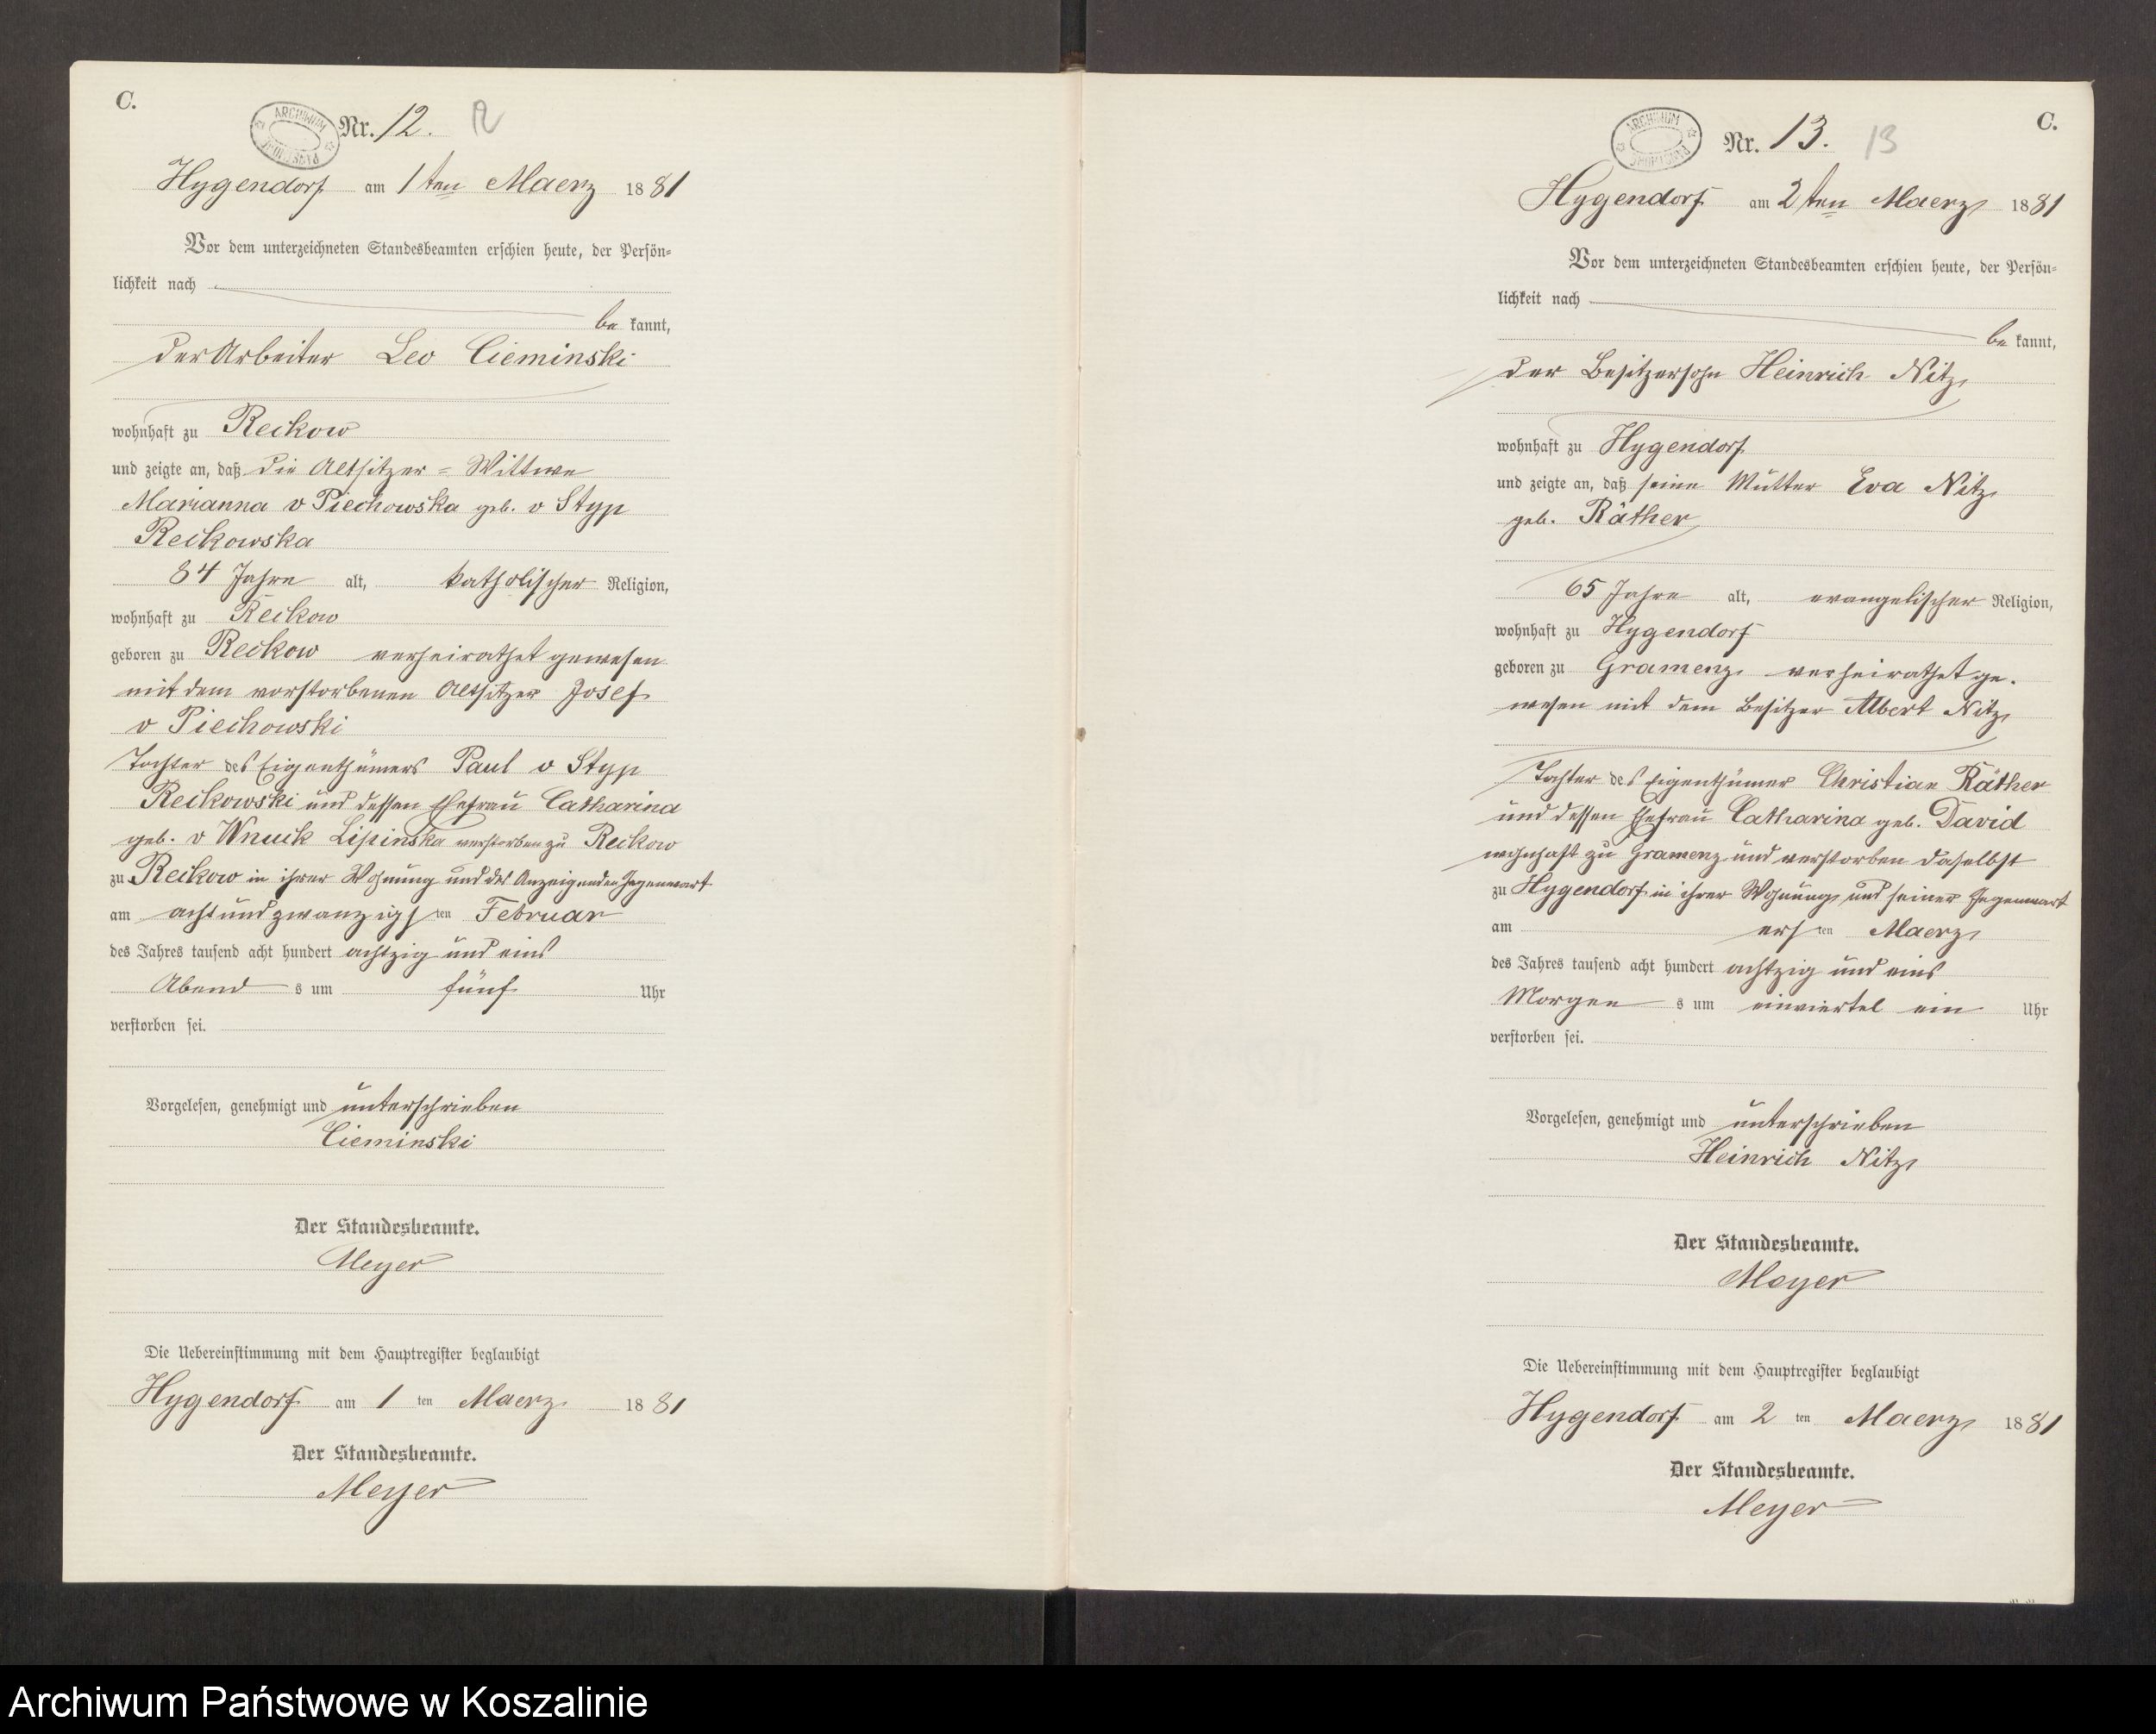 C.
ARCHIWUM
Nr. 12. 12
Hygendorf am 1ten Maerz 1881
Vor dem unterzeichneten Standesbeamten erschien heute, der Persön=
lichkeit nach
be kannt,
der Arbeiter Leo Cieminski
wohnhaft zu Reckow
und zeigte an, daß die Altsitzer=Wittwe
Marianna v Piechowska geb. v Styp
Reckowska
84 Jahre alt, katholischer Religion,
wohnhaft zu Reckow
geboren zu Reckow verheirathet gewesen
mit dem verstorbenen Altsitzer Josef
v Piechowski
Tochter des Eigenthümers Paul v Styp
Reckowski und dessen Ehefrau Catharina
geb. v Wnuck Lipinska verstorben zu Reckow
zu Reckow in ihrer Wohnung und des Anzeigenden Gegenwart
am acht und zwanzigsten Februar
des Jahres tausend acht hundert achtzig und eins
Abend s um fünf Uhr
verstorben sei.
Vorgelesen, genehmigt und unterschrieben
Cieminski
Der Standesbeamte.
Meyer
Die Uebereinstimmung mit dem Hauptregister beglaubigt
Hygendorf am 1 ten Maerz 1881
Der Standesbeamte.
Meyer
C.
ARCHIWUM
Nr. 13. 13
Hygendorf am 2ten Maerz 1881
Vor dem unterzeichneten Standesbeamten erschien heute, der Persön=
lichkeit nach
be kannt,
der Besitzersohn Heinrich Nitz
wohnhaft zu Hygendorf
und zeigte an, daß seine Mutter Eva Nitz
geb. Räther
65 Jahre alt, evangelischer Religion,
wohnhaft zu Hygendorf
geboren zu Gramenz verheirathet ge.
wesen mit dem Besitzer Albert Nitz
Tochter des Eigenthümer Christian Räther
und dessen Ehefrau Catharina geb. David
wohnhaft zu Gramenz und verstorben daselbst
zu Hygendorf in ihrer Wohnung und seiner Gegenwart
am ersten Maerz
des Jahres tausend acht hundert achtzig und eins
Morgen s um einviertel ein Uhr
verstorben sei.
Vorgelesen, genehmigt und unterschrieben
Heinrich Nitz
Der Standesbeamte.
Meyer
Die Uebereinstimmung mit dem Hauptregister beglaubigt
Hygendorf am 2 ten Maerz 1881
Der Standesbeamte.
Meyer
Archiwum Państwowe w Koszalinie